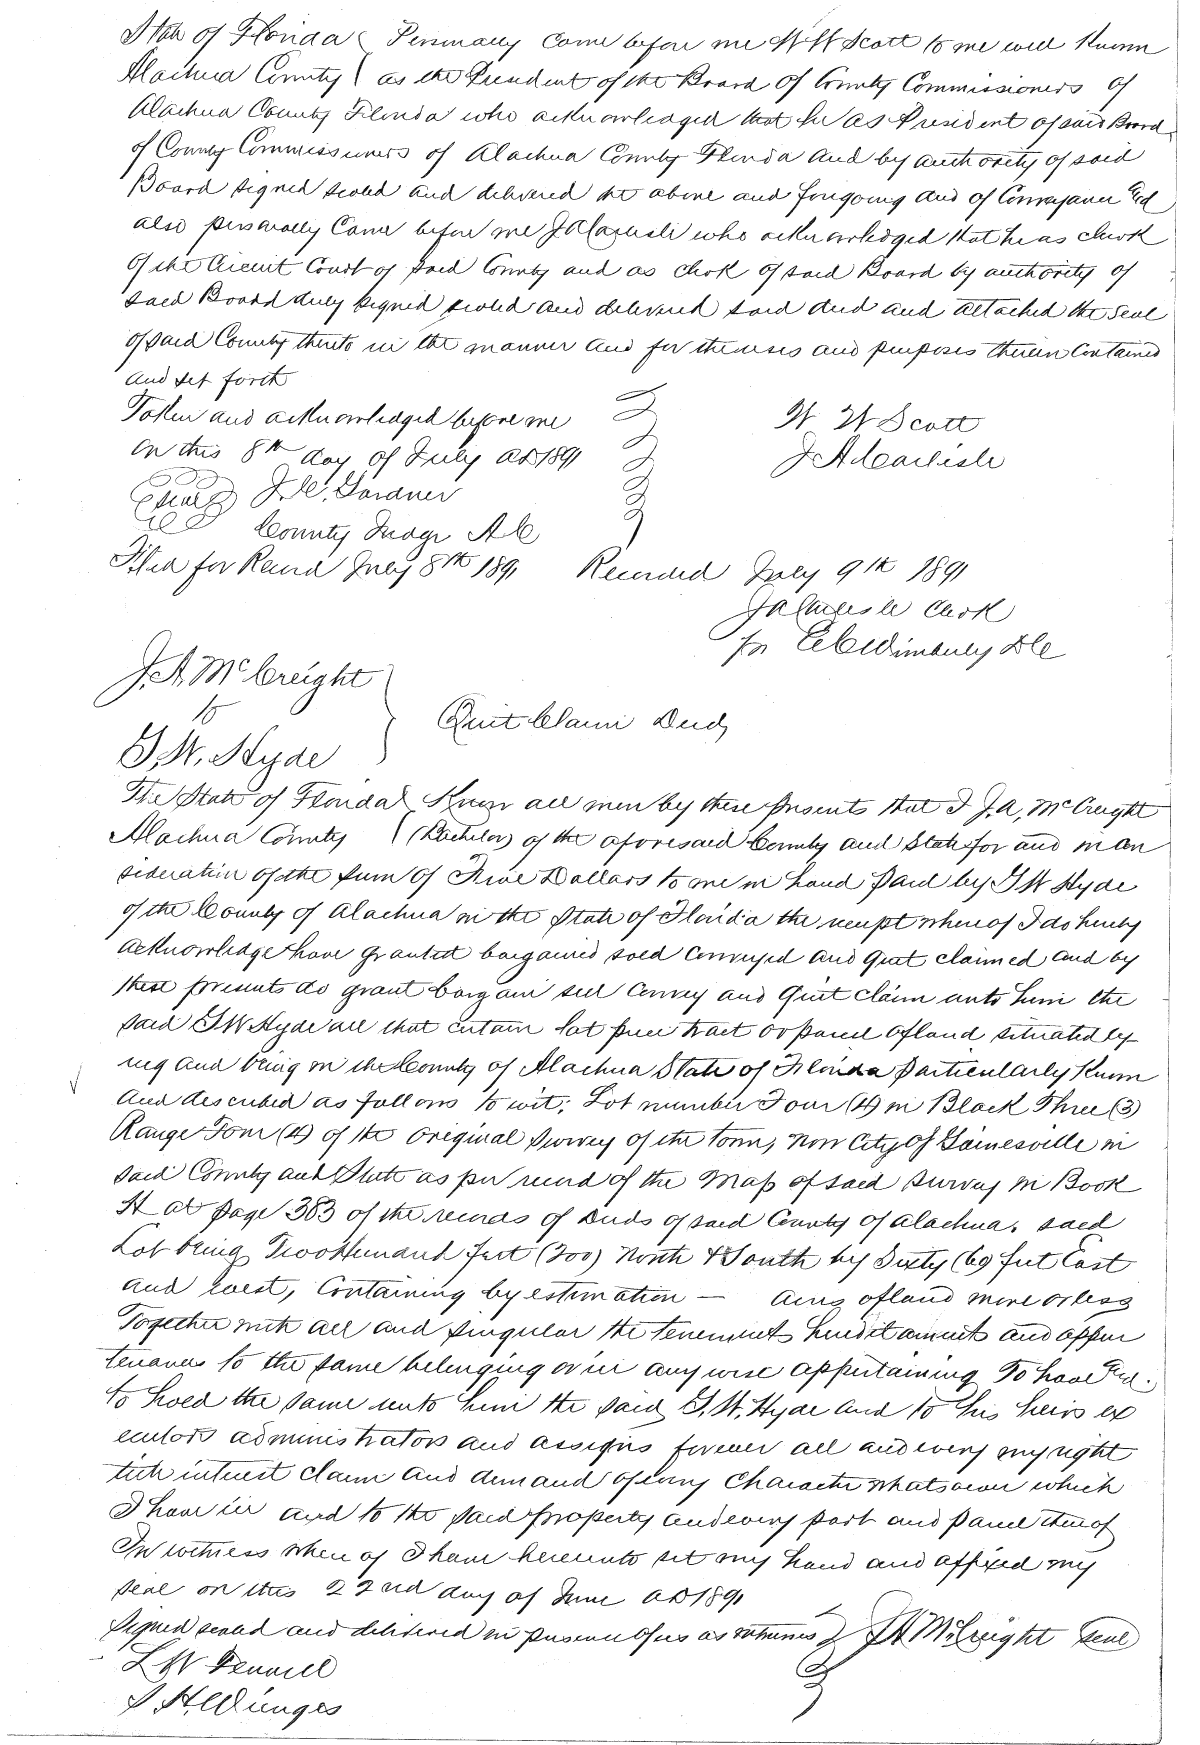 State of Florida ( Personally came before me W W Scott to me well known
Alachua County ( as the President of the Board of County Commissioners of
Alachua County Florida who acknowledged that he as President of said Board
of County Commissioners of Alachua County Florida and by authority of said
Board signed sealed and delivered the above and foregoing deed of Conveyance and
also personally came before me J A Carlisle who acknowledged that he as clerk
of the Circuit Court of said County and as clerk of said Board by authority of
said Board duly signed sealed and delivered said deed and attached the seal
of said County thereto in the manner and for the uses and purposes therein contained
and set forth
Taken and acknowledged before me
on this 8th day of July AD 1891
W W Scott
J A Carlisle
Seal J. C. Gardner
County Judge A C
Filed for Record July 8th 1891 Recorded July 9th 1891
J A Carlisle Clerk
per D C
J. A. McCreight
to
Quit Claim Deed
J. W. Hyde
The State of Florida ( Know all men by these presents that I J. A. McCreight
Alachua County ( (Bachelor) of the aforesaid County and State for and in con
sideration of the sum of Five Dollars to me in hand paid by J W Hyde
of the County of Alachua in the State of Florida the receipt where of I do hereby
acknowledge have granted bargained sold conveyed and quit claimed and by
these presents do grant bargain sell convey and Quit claim unto him the
said J W Hyde all that certain lot piece tract or parcel of land situated ly
ing and being in the County of Alachua State of Florida particularly known
and described as follows to wit: Lot number Four (4) in Block Three (3)
Range Four (4) of the original survey of the town, now City of Gainesville in
said County and State as per record of the Map of said survey in Book
H at page 383 of the records of Deeds of said County of Alachua. said
Lot being Two Hundred feet (200) North & South by Sixty (60) feet East
and west, containing by estimation — acres of land more or less
Together with all and singular the tenements hereditaments and appur
tenances to the same belonging or in any wise appertaining To have and
to hold the same unto him the said J. W. Hyde and to his heirs ex
ecutors administrators and assigns forever all and every my right
title interest claim and demand of every character whatsoever which
I have in and to the said property and every part and parcel thereof
In witness where of I have hereunto set my hand and affixed my
seal on this 22nd day of June AD 1891
Signed sealed and delivered in presence of us as witnesses J A McCreight Seal
L W Fennell